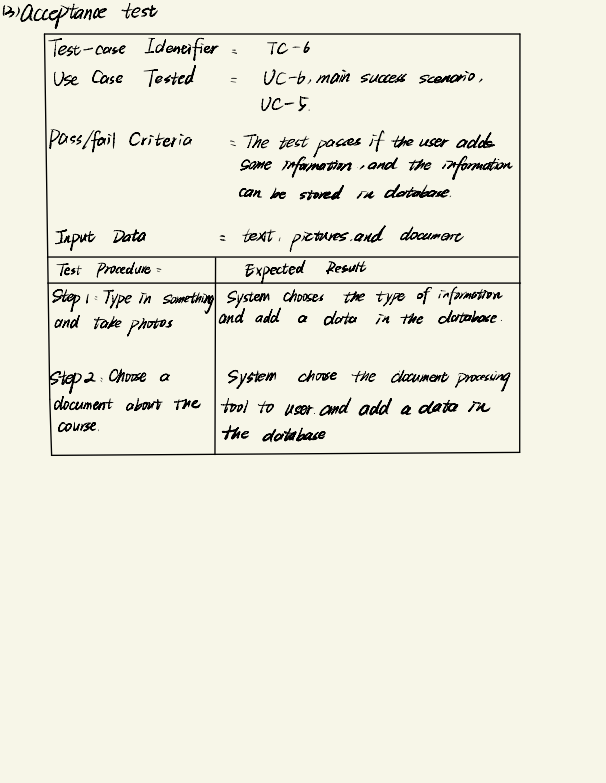 (3) Acceptance test
Test-case Identifier : TC-6
Use Case Tested : UC-6, main success scenario,
UC-5.
Pass/fail Criteria : The test passes if the user adds
some information, and the information
can be stored in database.
Input Data : text, pictures and document
Test Procedure: Expected Result
Step 1: Type in something System chooses the type of information
and take photos and add a data in the database.
Step 2: Choose a System choose the document processing
document about the tool to user and add a data in
course. the database